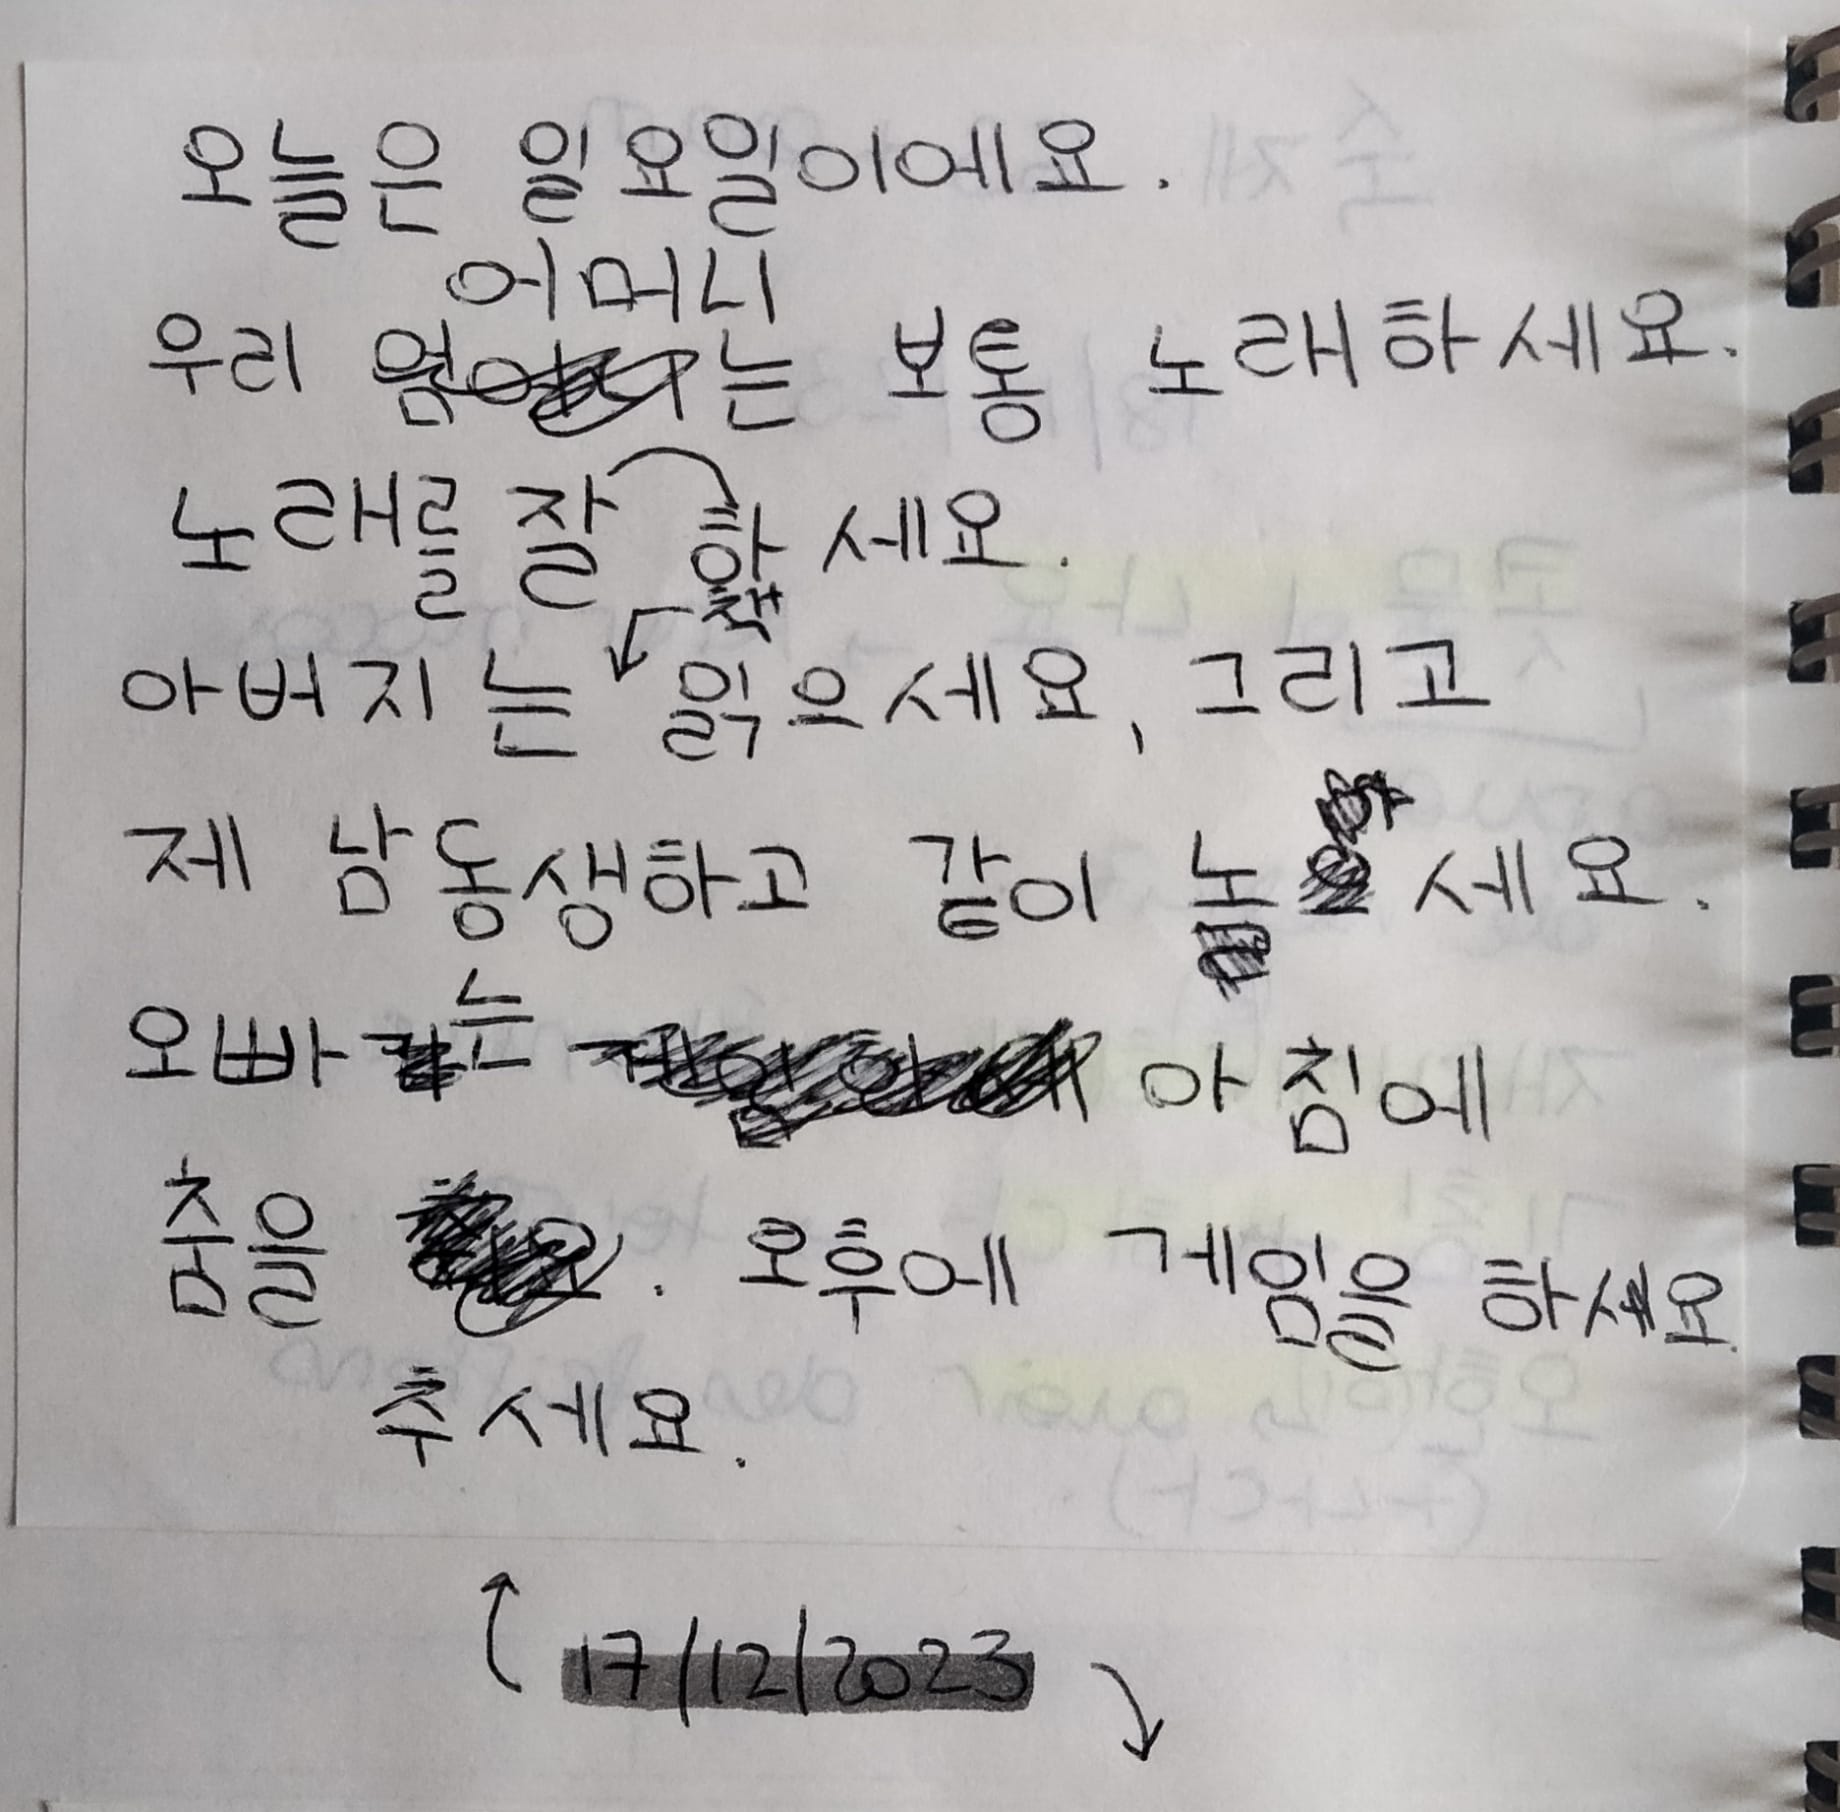 오늘은 일요일이에요.
어머니
우리 는 보통 노래하세요.
노래를 잘 하세요.
책
아버지는 읽으세요, 그리고
제 남동생하고 같이 노세요.
오빠는 아침에
춤을 . 오후에 게임을 하세요
추세요.
17/12/2023